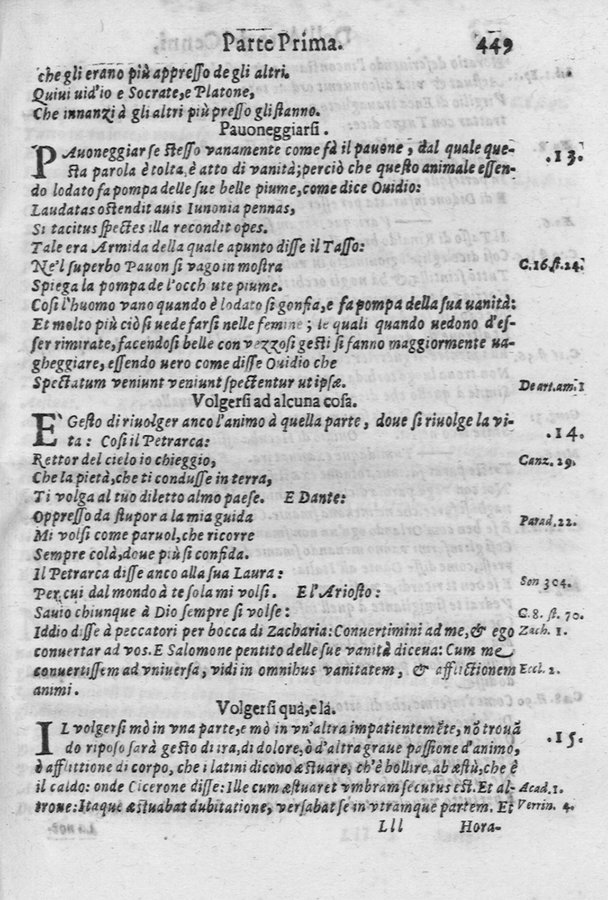 Parte Prima. 449
che gli erano più appresso de gli altri.
Quiui uid'io e Socrate, e Platone,
Che innanzi à gli altri più presso gli stanno.
Pauoneggiarsi.
PAuoneggiar se stesso vanamente come fà il pauone, dal quale que- .13.
sta parola è tolta, è atto di vanità; perciò che questo animale essen-
do lodato fa pompa delle sue belle piume, come dice Ouidio:
Laudatas ostendit auis Iunonia pennas,
Si tacitus spectes illa recondit opes.
Tale era Armida della quale apunto disse il Tasso:
Ne'l superbo Pauon si vago in mostra C.16.st.24.
Spiega la pompa de l'occh ute piume.
Così l'huomo vano quando è lodato si gonfia, e fa pompa della sua uanità:
Et molto più ciò si uede farsi nelle femine; le quali quando uedono d'es-
ser rimirate, facendosi belle con vezzosi gesti si fanno maggiormente ua-
gheggiare, essendo uero come disse Ouidio che
Spectatum veniunt veniunt spectentur ut ipsæ. De art.am.1
Volgersi ad alcuna cosa.
E' Gesto di riuolger anco l'animo à quella parte, doue si riuolge la vi- .14.
ta: Così il Petrarca:
Rettor del cielo io chieggio, Canz. 29.
Che la pietà, che ti condusse in terra,
Ti volga al tuo diletto almo paese. E Dante:
Oppresso da stupor a la mia guida Parad. 22.
Mi volsi come paruol, che ricorre
Sempre colà, doue più si confida.
Il Petrarca disse anco alla sua Laura:
Per cui dal mondo à te sola mi volsi. E l'Ariosto: Son 304.
Sauio chiunque à Dio sempre si volse: C.8. st. 70.
Iddio disse à peccatori per bocca di Zacharia: Conuertimini ad me, & ego Zach. 1.
conuertar ad vos. E Salomone pentito delle sue vanità diceua: Cum me
conuertissem ad vniuersa, vidi in omnibus vanitatem, & afflictionem Eccl. 2.
animi.
Volgersi quà, e là.
IL volgersi mò in vna parte, e mò in vn'altra impatientemẽte, nõ trouã .15.
do riposo sarà gesto di ira, di dolore, ò d'altra graue passione d'animo,
ò affittione di corpo, che i latini dicono æstuare, ch'è bollire, ab æstù, che è
il caldo: onde Cicerone disse: Ille cum æstuaret vmbram secutus est. Et al- Acad. 1.
troue: Itaque æstuabat dubitatione, versabat se in vtramque partem. Et Verrin. 4.
Lll Hora-